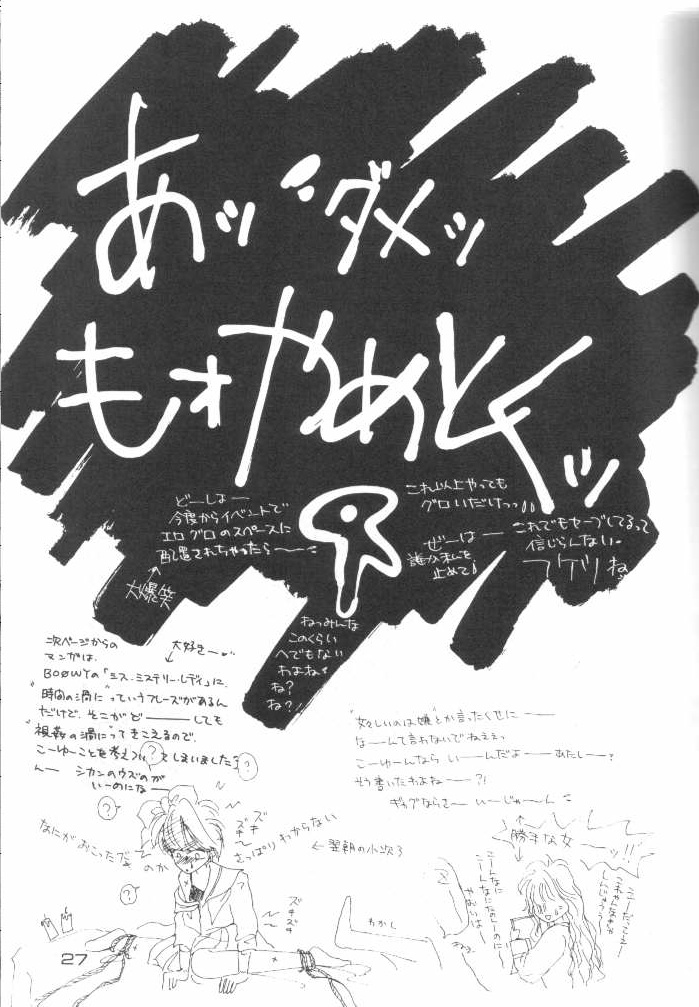 あッダメッ
もォやめとくッ
どーしよー
今度からイベントで
エログロのスペースに
配置されちゃったら〜〜〜
大爆笑
これ以上やっても
グロいだけっっ
ぜーはー
誰か私を
止めて
これでもセーブしてるって
信じらんない。
フケツね
ねっみんな
このくらい
へでもない
わよね
ね?
ね?
次ページからの
マンガは、
大好きー
BOØWYの「ミス・ミステリー・レディ」に、
"時間の渦に"っていうフレーズがあるん
だけど、そこがどーーーしても
に"ってきこえるので、
こーゆーことを考えついてしまいました
んー シカンのウズのが
いーのにな
"女々しいのは嫌"とか言ったくせにーー
なーんて言わないでねェェっ
こーゆーんなら いーんだよーあたしー
そう書いたわよねー?!
ギャグならさー いーじゃーん
?
?
?
?
なにがおこったのか
さっぱりわからない
ズキ
ズキ
←翌朝の小次
ズキ
ズキ
わかし
勝手な女
ッ!!
27